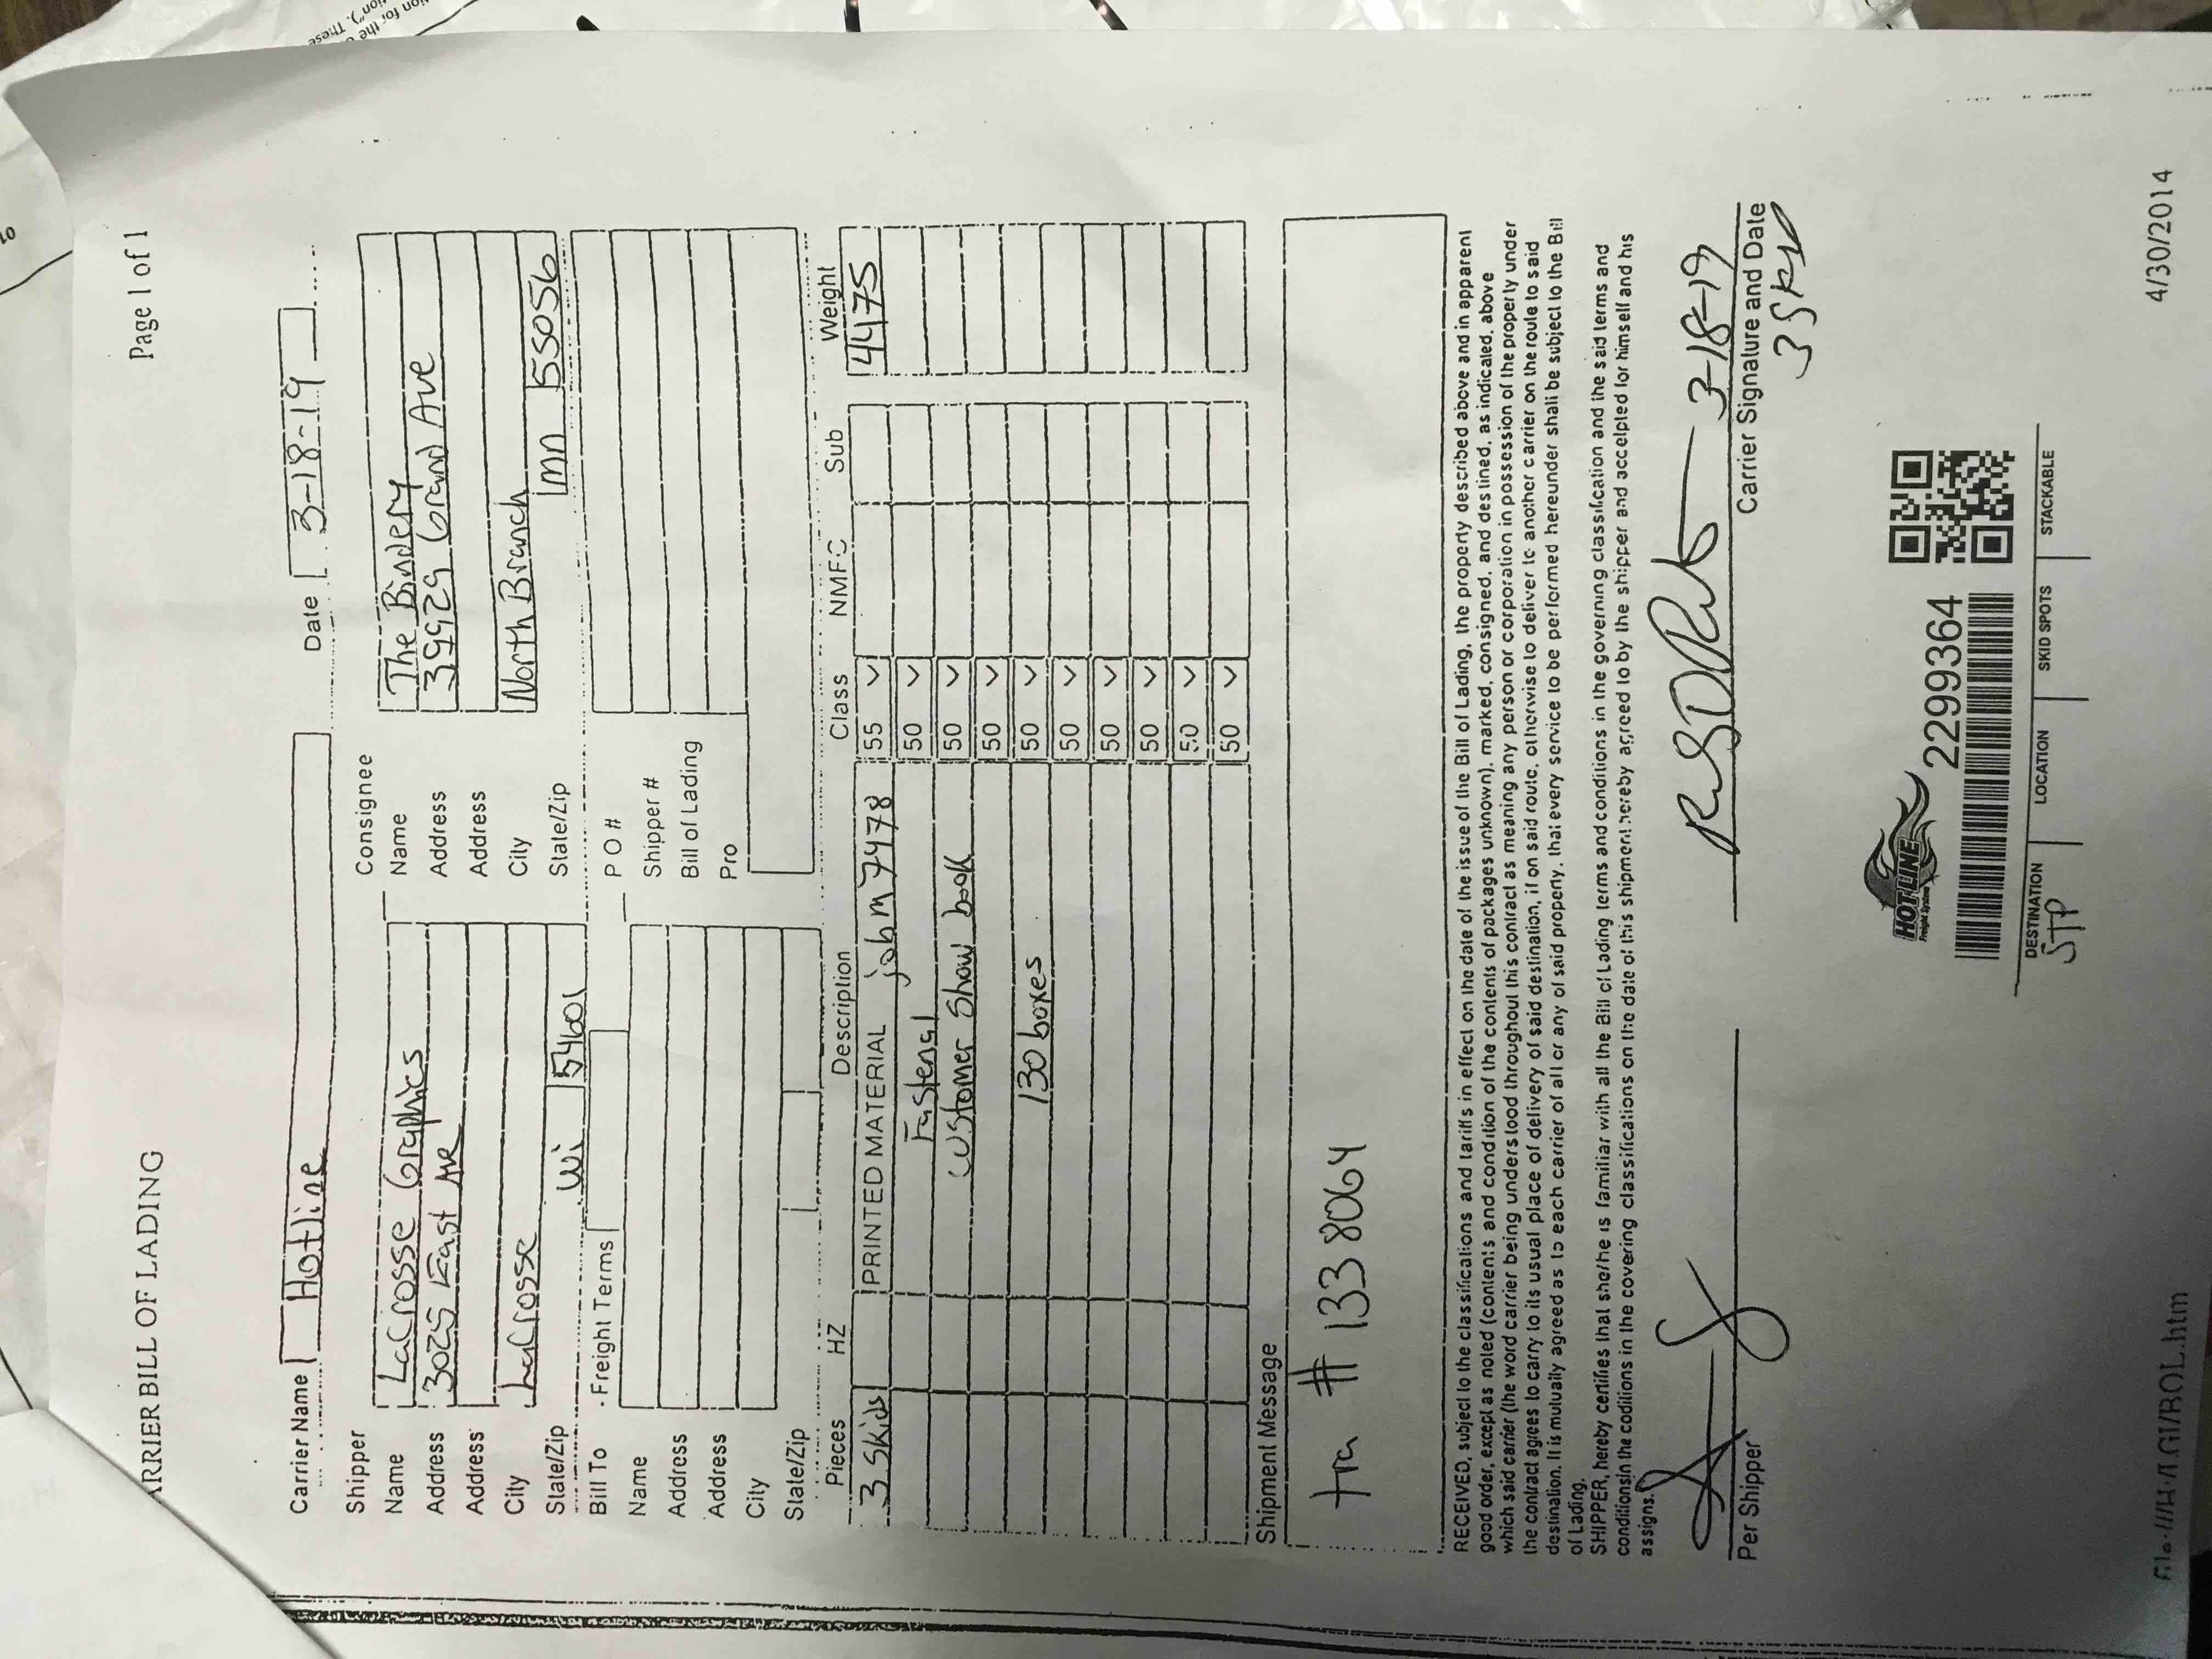 Page 1 of 1
ARRIER BILL OF LADING
Carrier Name Hotline Date 3-18-19
Shipper Consignee
Name LaCrosse Graphics Name The Bindery
Address 3025 East Ave Address Grand Ave
Address Address
City LaCrosse City North Branch
State/Zip Wi 54601 State/Zip mn 55056
Bill To - Freight Terms P O #
Name Shipper #
Address Bill of Lading
Address Pro
City
State/Zip
Pieces HZ Description Class NMFC Sub Weight
3 Skids PRINTED MATERIAL job m 7478 55 4475
Fastenal 50
Customer Show book 50
50
130 boxes 50
50
50
50
50
50
Shipment Message
tra # 1338064
RECEIVED, subject to the classifications and tariffs in effect on the date of the issue of the Bill of Lading, the property described above and in apparent
good order, except as noted (contents and condition of the contents of packages unknown), marked, consigned, and destined, as indicated, above
which said carrier (the word carrier being understood throughout this contract as meaning any person or corporation in possession of the property under
the contract agrees to carry to its usual place of delivery of said destination, if on said route, otherwise to deliver to another carrier on the route to said
destination. It is mutually agreed as to each carrier of all or any of said property, that every service to be performed hereunder shall be subject to the Bill
of Lading.
SHIPPER, hereby certifies that she/he is familiar with all the Bill of Lading terms and conditions in the governing classification and the said terms and
conditionsin the coditions in the covering classifications on the date of this shipment hereby agreed to by the shipper and accelpted for himself and his
assigns.
3-18-19
Per Shipper Carrier Signature and Date
HOTLINE
Freight System
2299364
DESTINATION LOCATION SKID SPOTS STACKABLE
STP
file://H:\LGI\BOL.htm 4/30/2014